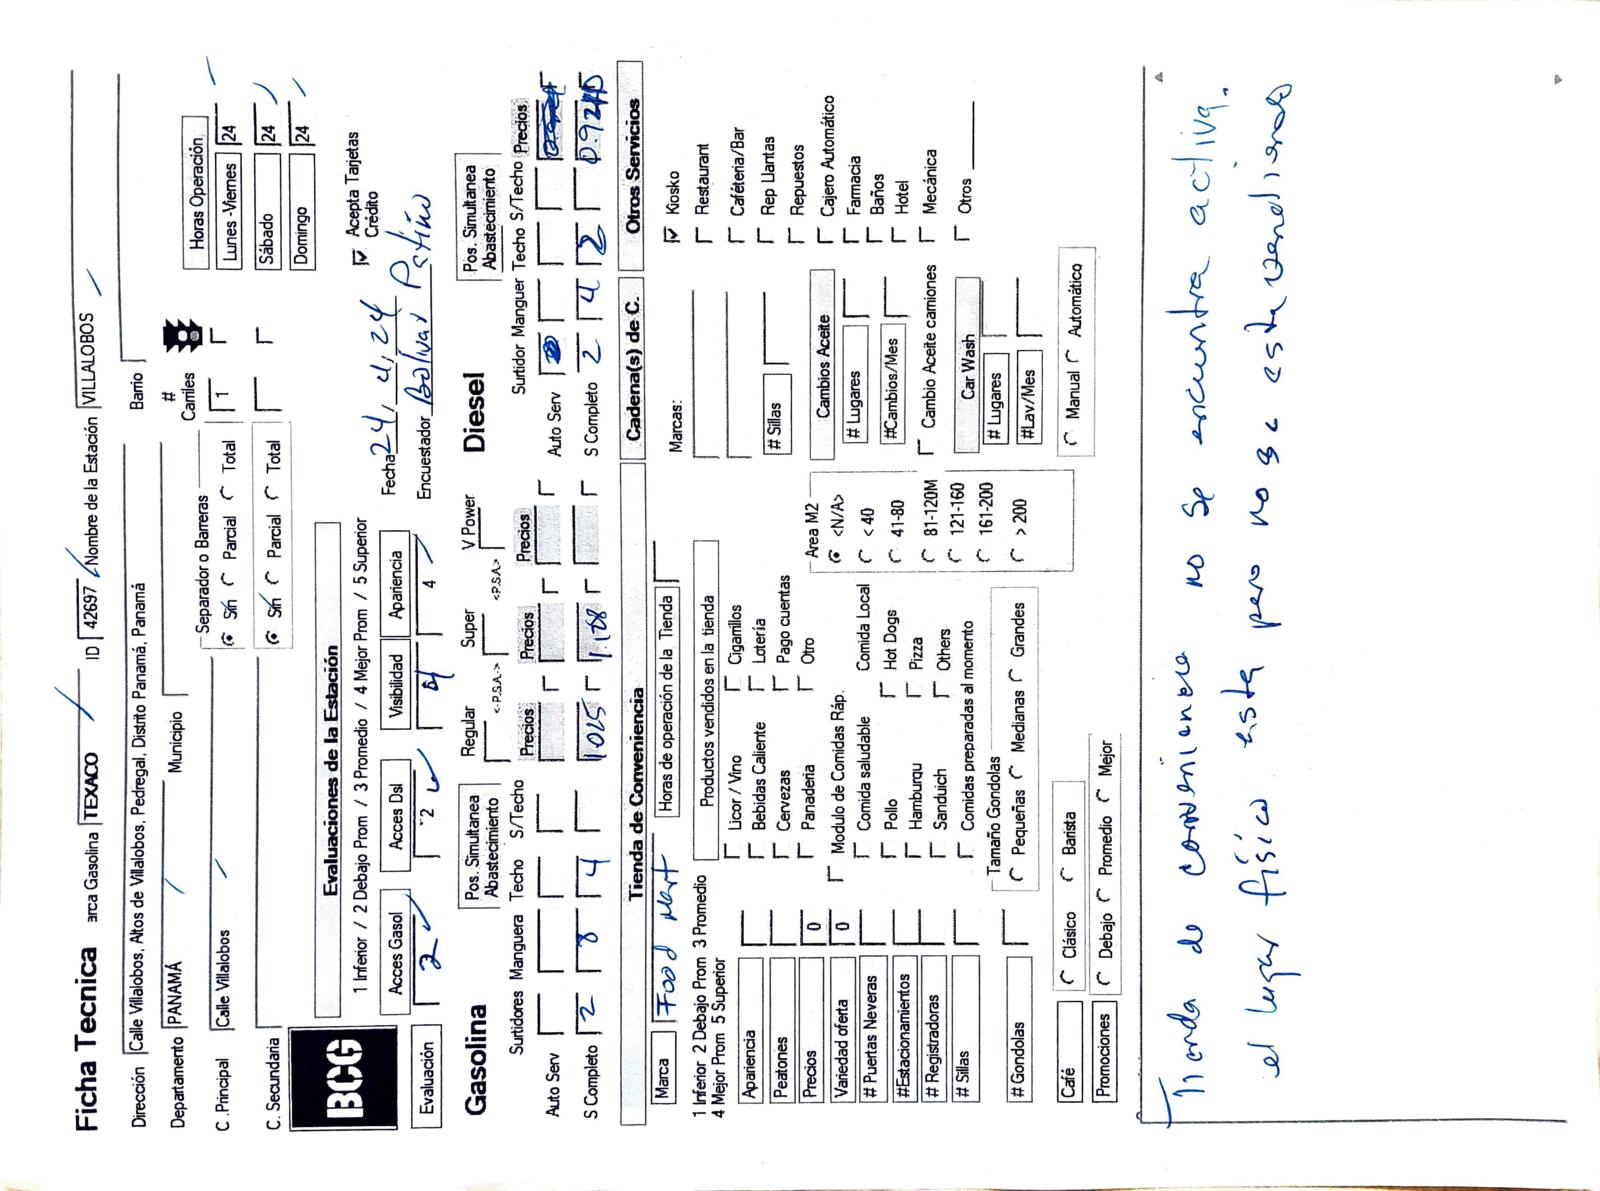 Ficha Tecnica arca Gasolina TEXACO ID 42697 Nombre de la Estación VILLALOBOS
Dirección Calle Villalobos, Altos de Villalobos, Pedregal, Distrito Panamá, Panamá Barrio
Departamento PANAMÁ Municipio
Separador o Barreras # Carriles
C .Principal Calle Villalobos Sin Parcial Total 1
C. Secundaria Sin Parcial Total
Horas Operación
Lunes -Viernes 24
Sábado 24
Domingo 24
BCG
Evaluaciones de la Estación
1 Inferior / 2 Debajo Prom / 3 Promedio / 4 Mejor Prom / 5 Superior
Acces Gasol Acces Dsl Visibilidad Apariencia
Evaluación 2 2 4 4
Fecha 24, 4, 24
Acepta Tarjetas Crédito
Encuestador Bolivar Patiño
Gasolina
Pos. Simultanea Abastecimiento
Regular Super V Power
<-P.S.A.-> <-P.S.A.>
Surtidores Manguera Techo S/Techo Precios Precios Precios
Auto Serv
S Completo 2 8 4 1.025 1.108
Diesel
Pos. Simultanea Abastecimiento
Surtidor Manguer Techo S/Techo Precios
Auto Serv
S Completo 2 4 2
Tienda de Conveniencia
Marca Food Mart Horas de operación de la Tienda
1 Inferior 2 Debajo Prom 3 Promedio
4 Mejor Prom 5 Superior
Apariencia
Peatones
Precios 0
Variedad oferta 0
# Puertas Neveras
#Estacionamientos
# Registradoras
# Sillas
# Gondolas
Productos vendidos en la tienda
Licor / Vino Cigarillos
Bebidas Caliente Lotería
Cervezas Pago cuentas
Panaderia Otro
Modulo de Comidas Ráp.
Comida saludable Comida Local
Pollo Hot Dogs
Hamburqu Pizza
Sanduich Others
Comidas preparadas al momento
Tamaño Gondolas
Pequeñas Medianas Grandes
Café Clásico Barista
Promociones Debajo Promedio Mejor
Area M2
<N/A>
< 40
41-80
81-120M
121-160
161-200
> 200
Cadena(s) de C.
Marcas:
# Sillas
Cambios Aceite
# Lugares
#Cambios/Mes
Cambio Aceite camiones
Car Wash
# Lugares
#Lav/Mes
Manual Automático
Otros Servicios
Kiosko
Restaurant
Caféteria/Bar
Rep Llantas
Repuestos
Cajero Automático
Farmacia
Baños
Hotel
Mecánica
Otros
Tienda de conveniencia no se encuentra activa.
el lugar físico esta pero no se esta vendiendo